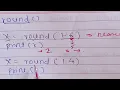 round()
x = round (1.6)
print(x)
→ 2
x = round (1.4)
print(